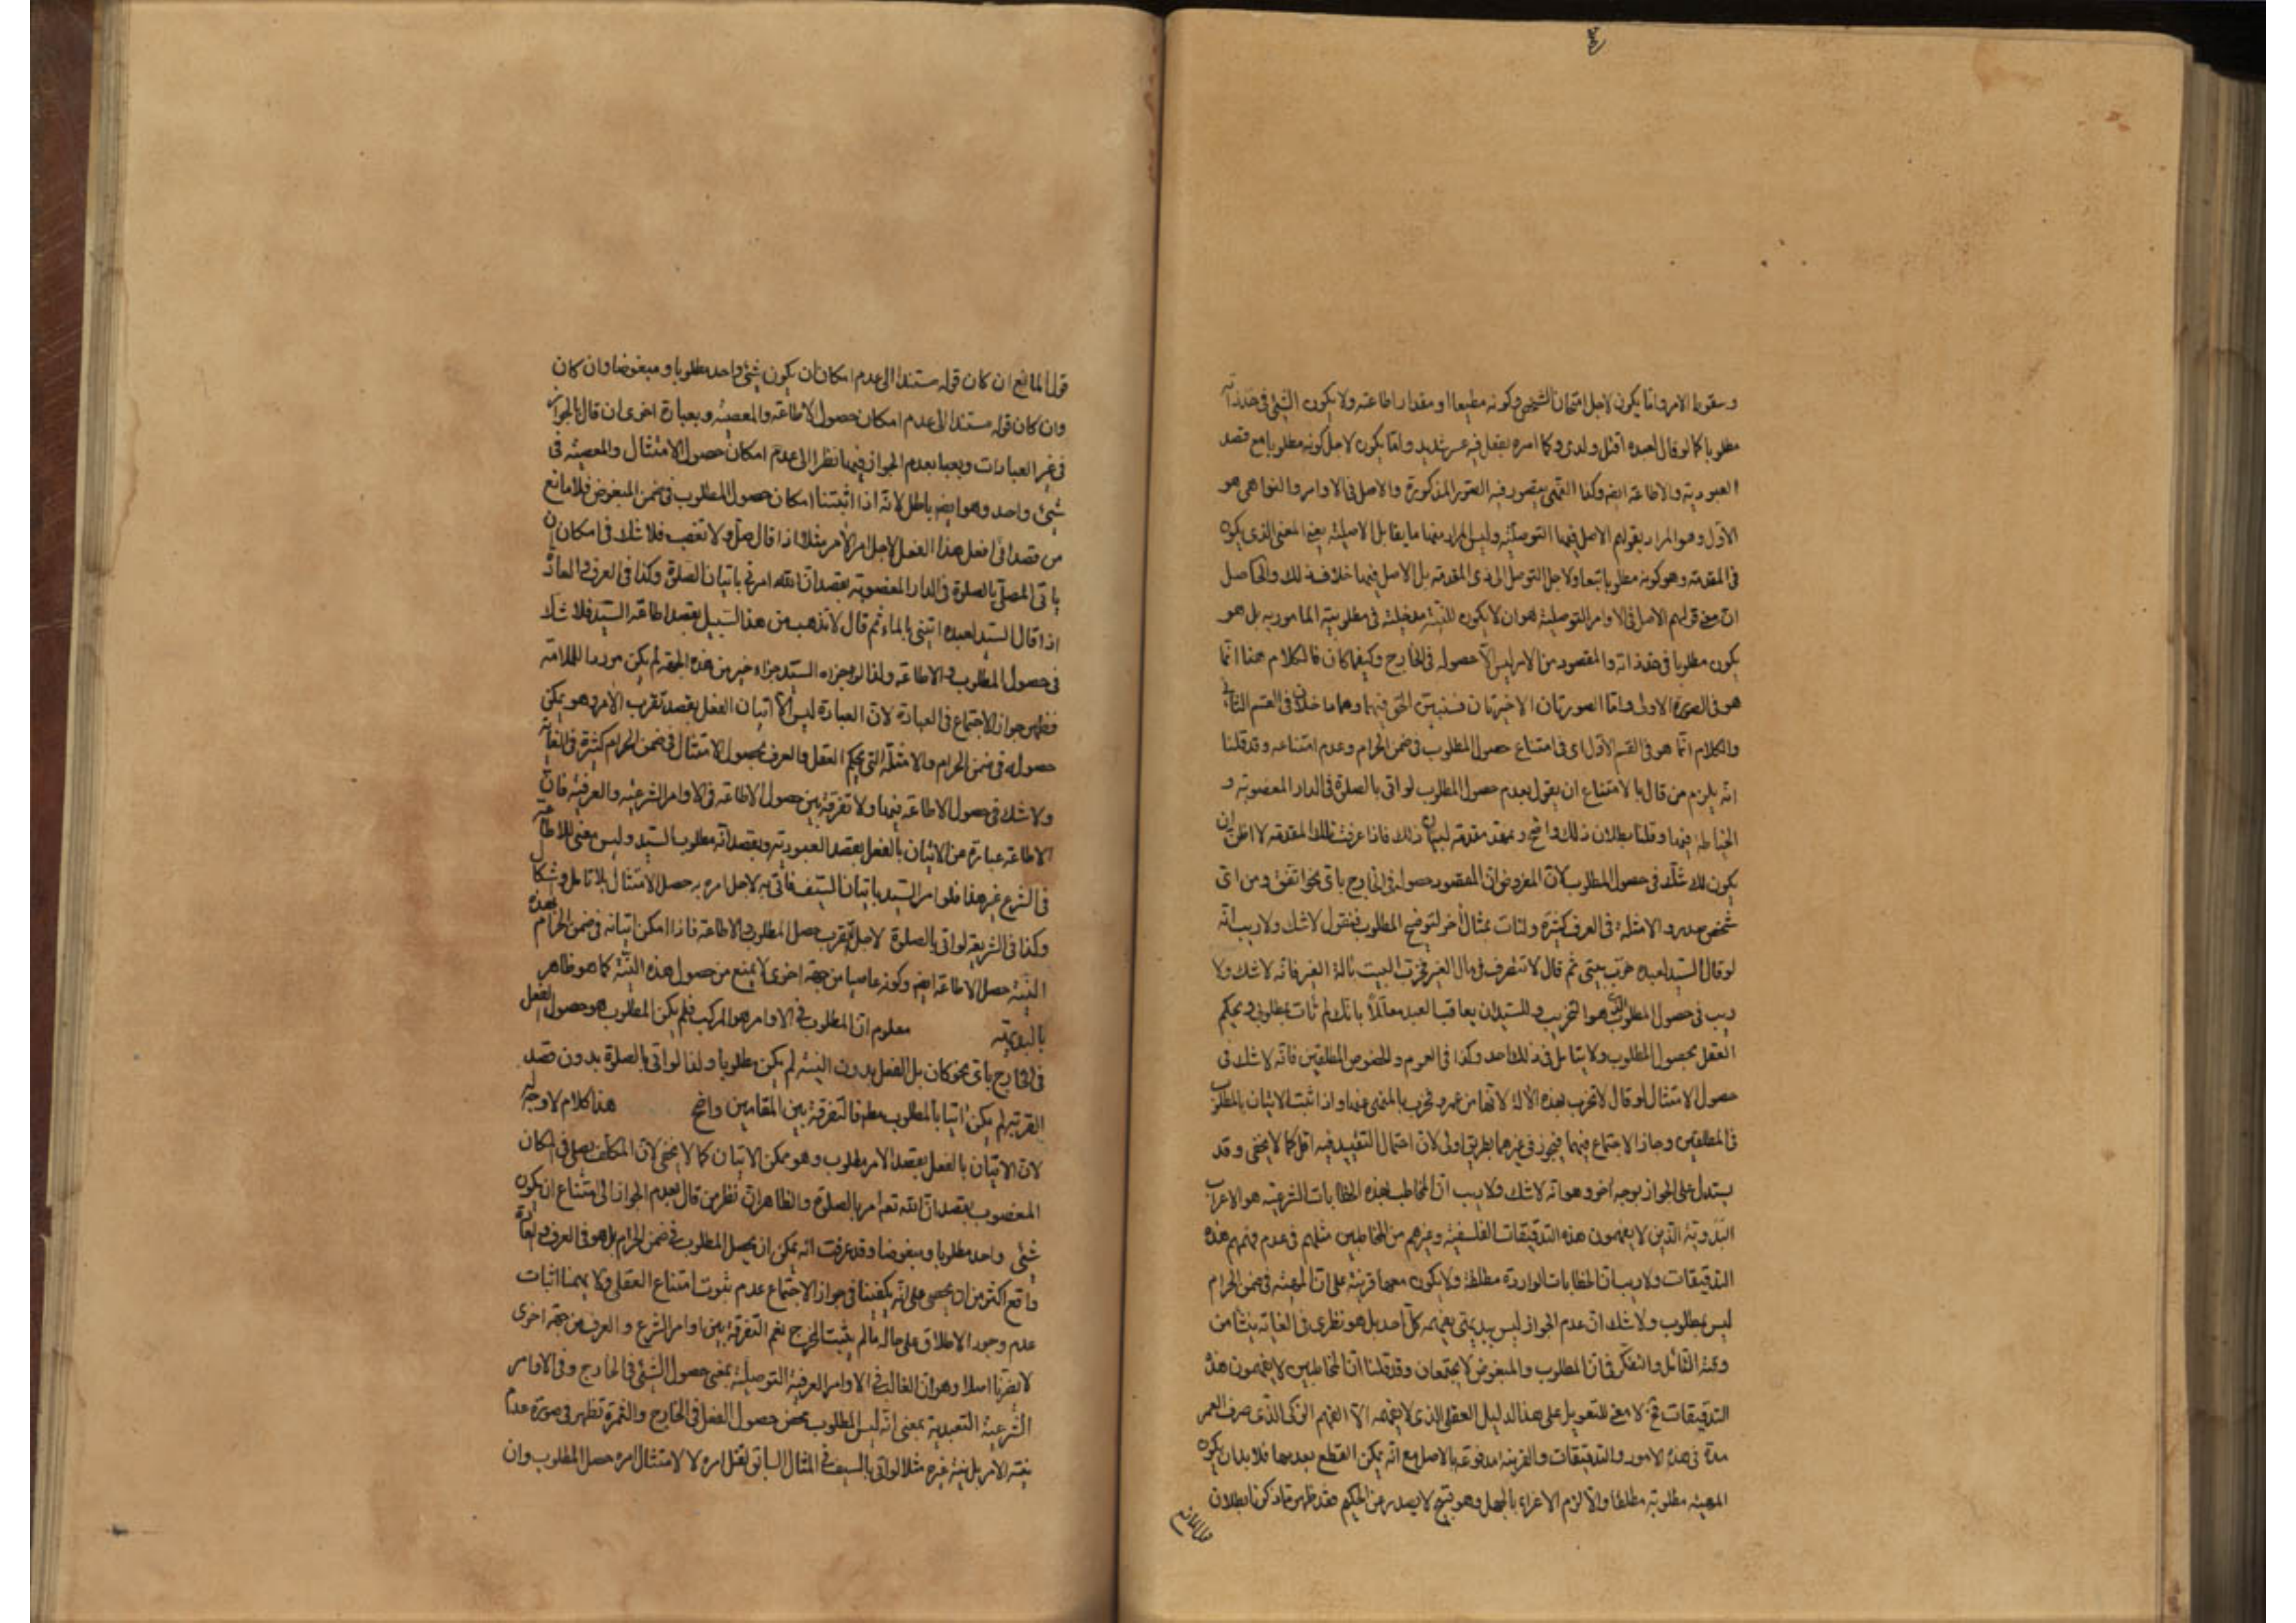 وسقوط الامر واما يكون لاجل امتحان الشخص وكونه مطيعا او مقدار اطاعته ولا يكون الشئ فى حد ذاته
مطلوبا كما لو قال لعبده اقتل ولدى وكما امره بفعل فيه عسر شديد واما يكون لاجل كونه مطلوبا مع قصد
العبودية والاطاعة ايضا وكذا النهى يتصور فيه الصور المذكورة والاصل فى الاوامر والنواهى هو
الاول وهو المراد بقولهم الاصل فيهما التوصلية وليس المراد منها ما يقابل الاصلية يعنى المعنى الذى يكون
فى المقدمة وهو كونه مطلوبا تبعا ولاجل التوصل الى ذى المقدمة بل الاصل فيهما خلاف ذلك والحاصل
ان معنى قولهم الاصل فى الاوامر التوصلية هو ان لا يكون للنية مدخلية فى مطلوبية المامور به بل هو
يكون مطلوبا فى حد ذاته والمقصود من الامر ليس الا حصوله فى الخارج وكيفما كان فالكلام هنا انما
هو فى الصورة الاولى واما الصورتان الاخيرتان فسنبين الحق فيهما وهما داخلان فى القسم الثانى
والكلام انما هو فى القسم الاول اى فى امتناع حصول المطلوب فى ضمن الحرام وعدم امتناعه وقد قلنا
انه يلزم من قال بالامتناع ان يقول بعدم حصول المطلوب لو اتى بالصلوة فى الدار المغصوبة و
الخياطة فيها وقلنا بطلان ذلك واضح ونمهد مقدمة لبيان ذلك فاذا عرفت تلك المقدمة لا اظن ان
يكون لك شك فى حصول المطلوب لان المفروض ان المقصود حصوله فى الخارج باى نحو اتفق ومن اى
شخص صدر والامثلة فى العرف كثيرة ولنات بمثال آخر لتوضيح المطلوب فنقول لا شك ولا ريب انه
لو قال السيد لعبده خرّب بيتى ثم قال لا تتصرف فى مال الغير فخرب البيت بآلة الغير فانه لا شك ولا
ريب فى حصول المطلوب الذى هو التخريب وللسيد ان يعاقب العبد معللا بانك لم تات بمطلوبى ويحكم
العقل بحصول المطلوب ولا يتامل فى ذلك احد وكذا فى العموم والخصوص المطلقين فانه لا شك فى
حصول الامتثال لو قال لا تخرب بهذه الآلة لانها من عمرو فخرب بالمنهى عنها واذا ثبت الاتيان بالمطلوب
فى المطلقين وجاز الاجتماع فيهما فيجوز فى غيرهما بطريق اولى لان احتمال التقييد فيه اقل كما لا يخفى وقد
يستدل على الجواز بوجه آخر وهو انه لا شك ولا ريب ان المخاطب بهذه الخطابات الشرعية هو الاعراب
البدوية الذين لا يفهمون هذه التدقيقات الفلسفية وغيرهم من المخاطبين مثلهم فى عدم فهمهم هذه
التدقيقات ولا ريب ان الخطابات الواردة مطلقة ولا يكون معها قرينة على ان المهية فى ضمن الحرام
ليس بمطلوب ولا شك ان عدم الجواز ليس ببديهى يفهمه كل احد بل هو نظرى فى الغاية ينشأ من
وية التأمل والتفكر فى ان المطلوب والمبغوض لا يجتمعان وقد قلنا ان المخاطبين لا يفهمون هذه
التدقيقات فح لا معنى للتعويل على هذا الدليل العقلى الذى لا يفهمه الا الفهم الزكى الذى صرف العمر
مدة فى هذه الامور والتدقيقات والقرينة مدفوعة بالاصل مع انه يمكن القطع بعدمها فلا بد ان يكون
المهية مطلوبة مطلقا والا لزم الاغراء بالجهل وهو قبيح لا يصدر عن الحكيم فقد ظهر مما ذكرنا بطلان
قول المانع ان كان قوله مستندا الى عدم امكان ان يكون شئ واحد مطلوبا ومبغوضا وان كان
وان كان قوله مستندا الى عدم امكان حصول الاطاعة والمعصية وبعبارة اخرى ان قال بالجواز
فى غير العبادات وفيها بعدم الجواز فيها نظرا الى عدم امكان حصول الامتثال والمعصية فى
شئ واحد وهو ايضا باطل لانه اذا اثبتنا امكان حصول المطلوب فى ضمن المبغوض فلا مانع
من قصد انى افعل هذا الفعل لاجل امر الآمر مثلا اذا قال صل ولا تغصب فلا شك فى امكان ان
ياتى المصلى بالصلوة فى الدار المغصوبة بقصد ان الله امرنى باتيان الصلوة وكذا فى العرف والعادة
اذا قال السيد لعبده ايتنى بالماء ثم قال لا تذهب من هذا السبيل بقصد اطاعة السيد فلا شك
فى حصول المطلوب والاطاعة ولذا لو جزاه السيد جزاء خير من هذه الجهة لم يكن موردا للملامة
فظهر جواز الاجتماع فى العبادة لان العبادة ليس الا اتيان الفعل بقصد تقرب الآمر وهو يمكن
حصوله فى ضمن الحرام والامثلة التى يحكم العقل والعرف بحصول الامتثال فى ضمن الحرام كثيرة فى الغاية
ولا شك فى حصول الاطاعة فيها ولا تفرقة بين حصول الاطاعة فى الاوامر الشرعية والعرفية فان
الاطاعة عبارة عن الاتيان بالفعل بقصد العبودية وبقصد انه مطلوب السيد وليس معنى للاطاعة
فى الشرع غير هذا فلو امر السيد باتيان السيف فاتى به لاجل امره به حصل الامتثال بلا تامل وشك
وكذا فى الشريعة لو اتى بالصلوة لاجل التقرب حصل المطلوب والاطاعة فاذا امكن اتيانه فى ضمن الحرام بهذه
النية حصل الاطاعة ايضا وكونه عاصيا من جهة اخرى لا يمنع من حصول هذه النية كما هو ظاهر
بالبديهة معلوم ان المطلوب فى الاوامر هو المركب فلم يكن المطلوب هو حصول الفعل
فى الخارج باى نحو كان بل الفعل بدون النية لم يكن مطلوبا ولذا لو اتى بالصلوة بدون قصد
القربة لم يكن آتيا بالمطلوب مطلقا فالتفرقة بين المقامين واضح هذا كلام لا وجه له
لان الاتيان بالفعل بقصد الامر مطلوب وهو ممكن الاتيان كما لا يخفى لان المكلف يصلى فى المكان
المغصوب بقصد ان الله تعالى امر بالصلوة والظاهر ان نظر من قال بعدم الجواز الى امتناع ان يكون
شئ واحد مطلوبا ومبغوضا وقد عرفت انه يمكن ان يحصل المطلوب فى ضمن الحرام بل هو فى العرف والعادة
واقع اكثر من ان يحصى على انه يكفينا فى جواز الاجتماع عدم ثبوت امتناع العقلى ولا يهمنا اثبات
عدم وجود الاطلاق على حاله ما لم يثبت المخرج نعم التفرقة بين اوامر الشرع والعرف من جهة اخرى
لا يضرنا اصلا وهو ان الغالب فى الاوامر العرفية التوصلية بمعنى حصول الشئ فى الخارج وفى الاوامر
الشرعية التعبدية بمعنى انه ليس المطلوب محض حصول الفعل فى الخارج والثمرة تظهر فى صورة عدم
نية الامر بل نية غيره مثلا لو اتى بالسيف فى المثال السابق لقتل امره لا لامتثال امره حصل المطلوب وان